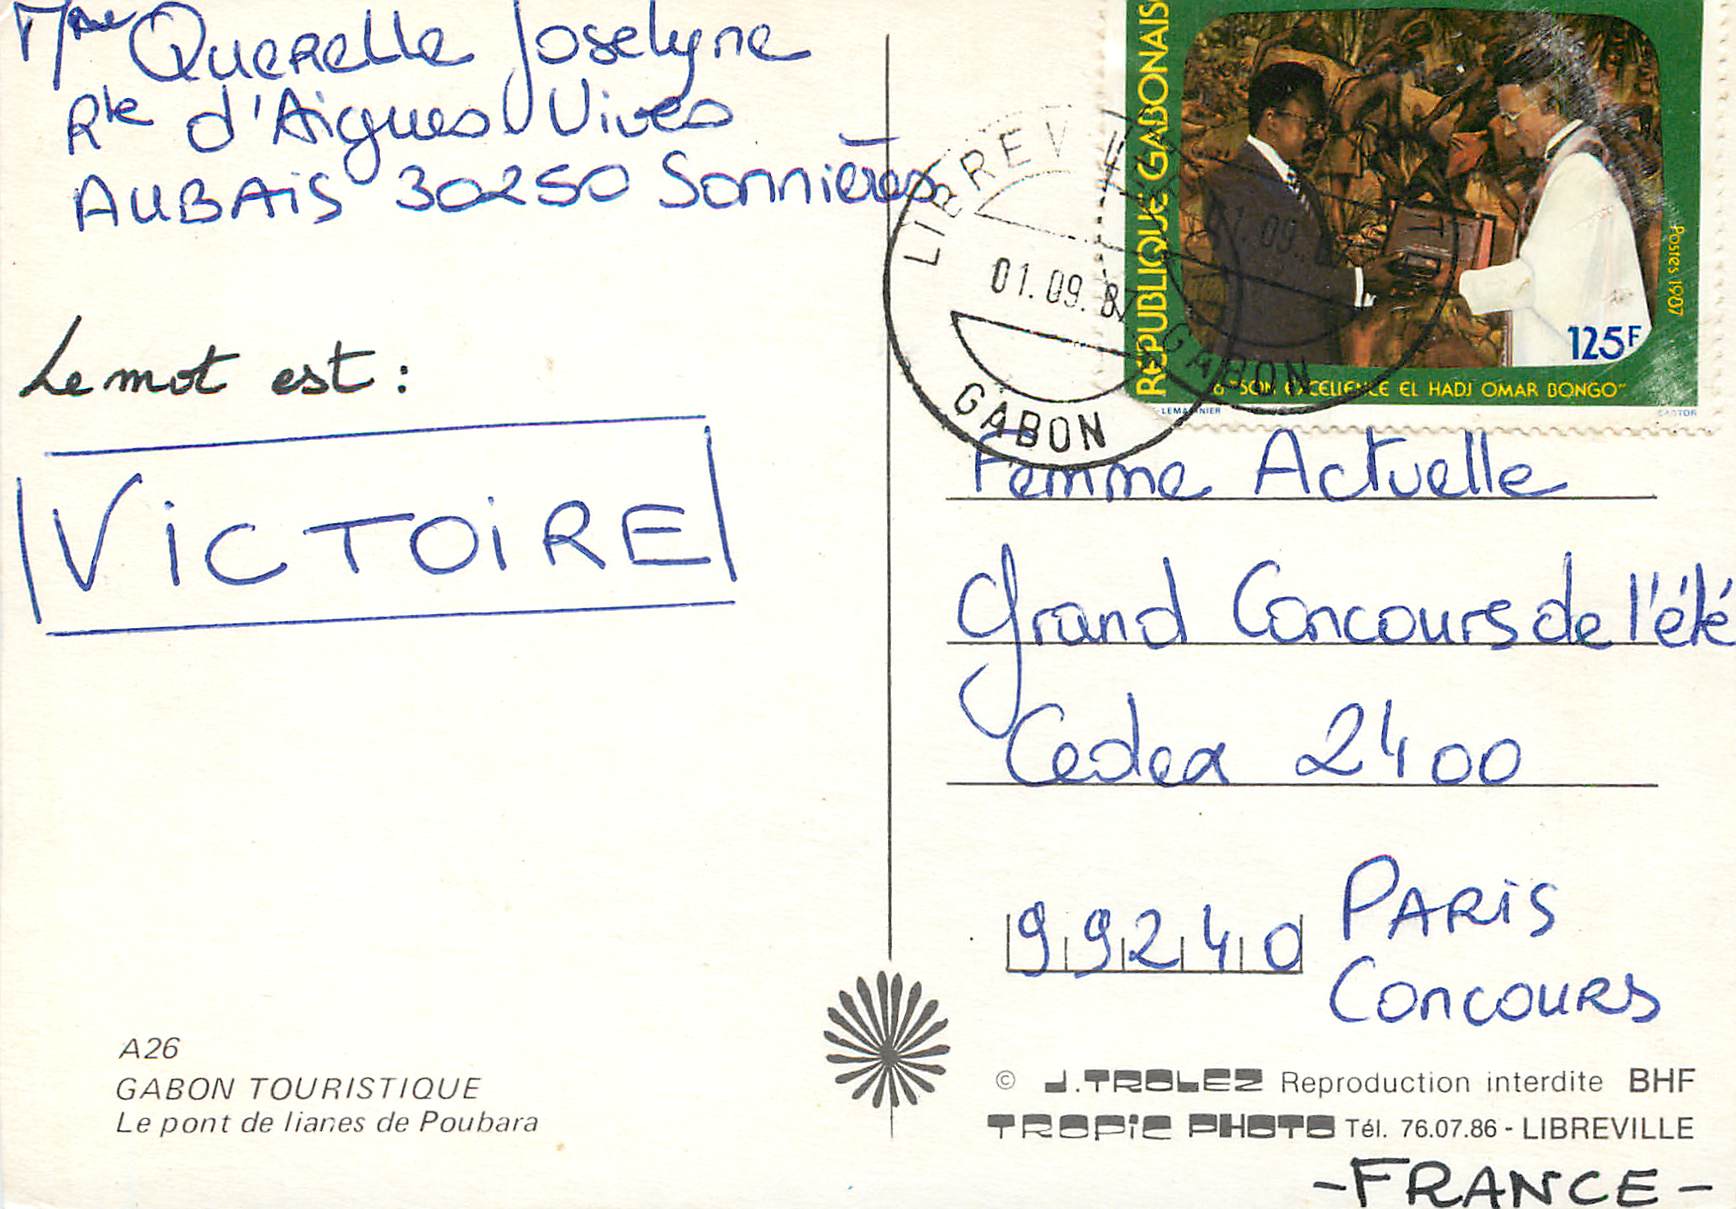 Mme Querelle Joselyne
Rte d'Aigues Vives
AUBAIS 30250 Sommières
Le mot est :
VICTOIRE
A26
GABON TOURISTIQUE
Le pont de lianes de Poubara
REPUBLIQUE GABONAISE
Postes 1987
125F
"SON EXCELLENCE EL HADJ OMAR BONGO"
CARTOR
LIBREVILLE
01.09.87
GABON
01.09.
GABON
Femme Actuelle
Grand Concours de l'été
Cedex 2400
99240 PARIS
CONCOURS
© J.TROLEZ Reproduction interdite BHF
TROPIC PHOTO Tél. 76.07.86 - LIBREVILLE
- FRANCE -